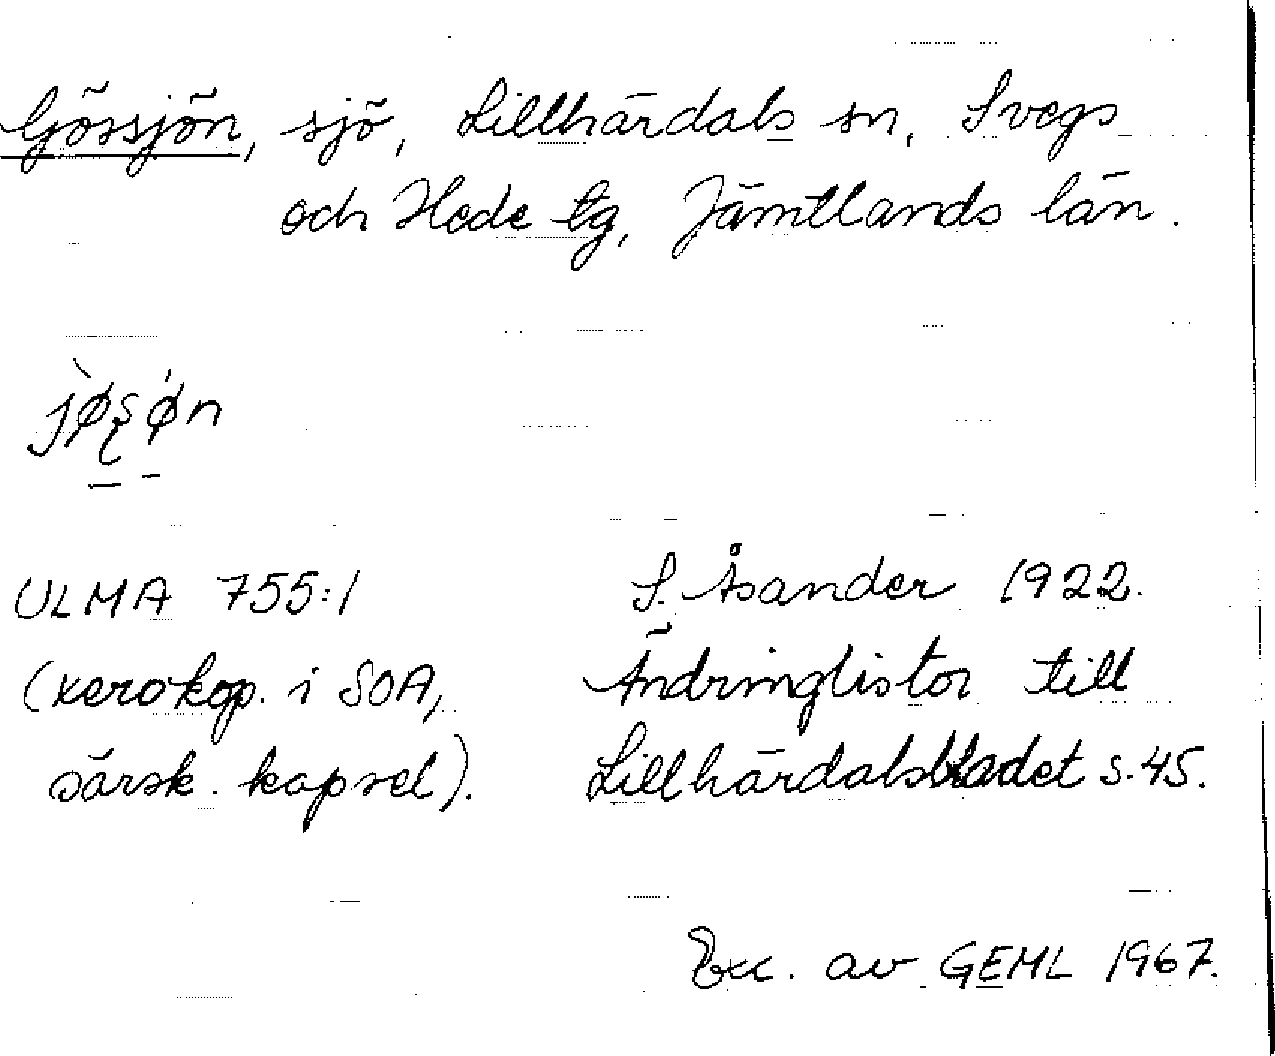 Gössjön, sjö, Lillhärdals sn, Svegs
och Hede tg, Jämtlands län.
ULMA 755:1 S. Åsander 1922.
(xerokop. i SOA, Ändringlistor till
särsk. kapsel). Lillhärdalsbladet s. 45.
Exc. av GEML 1967.